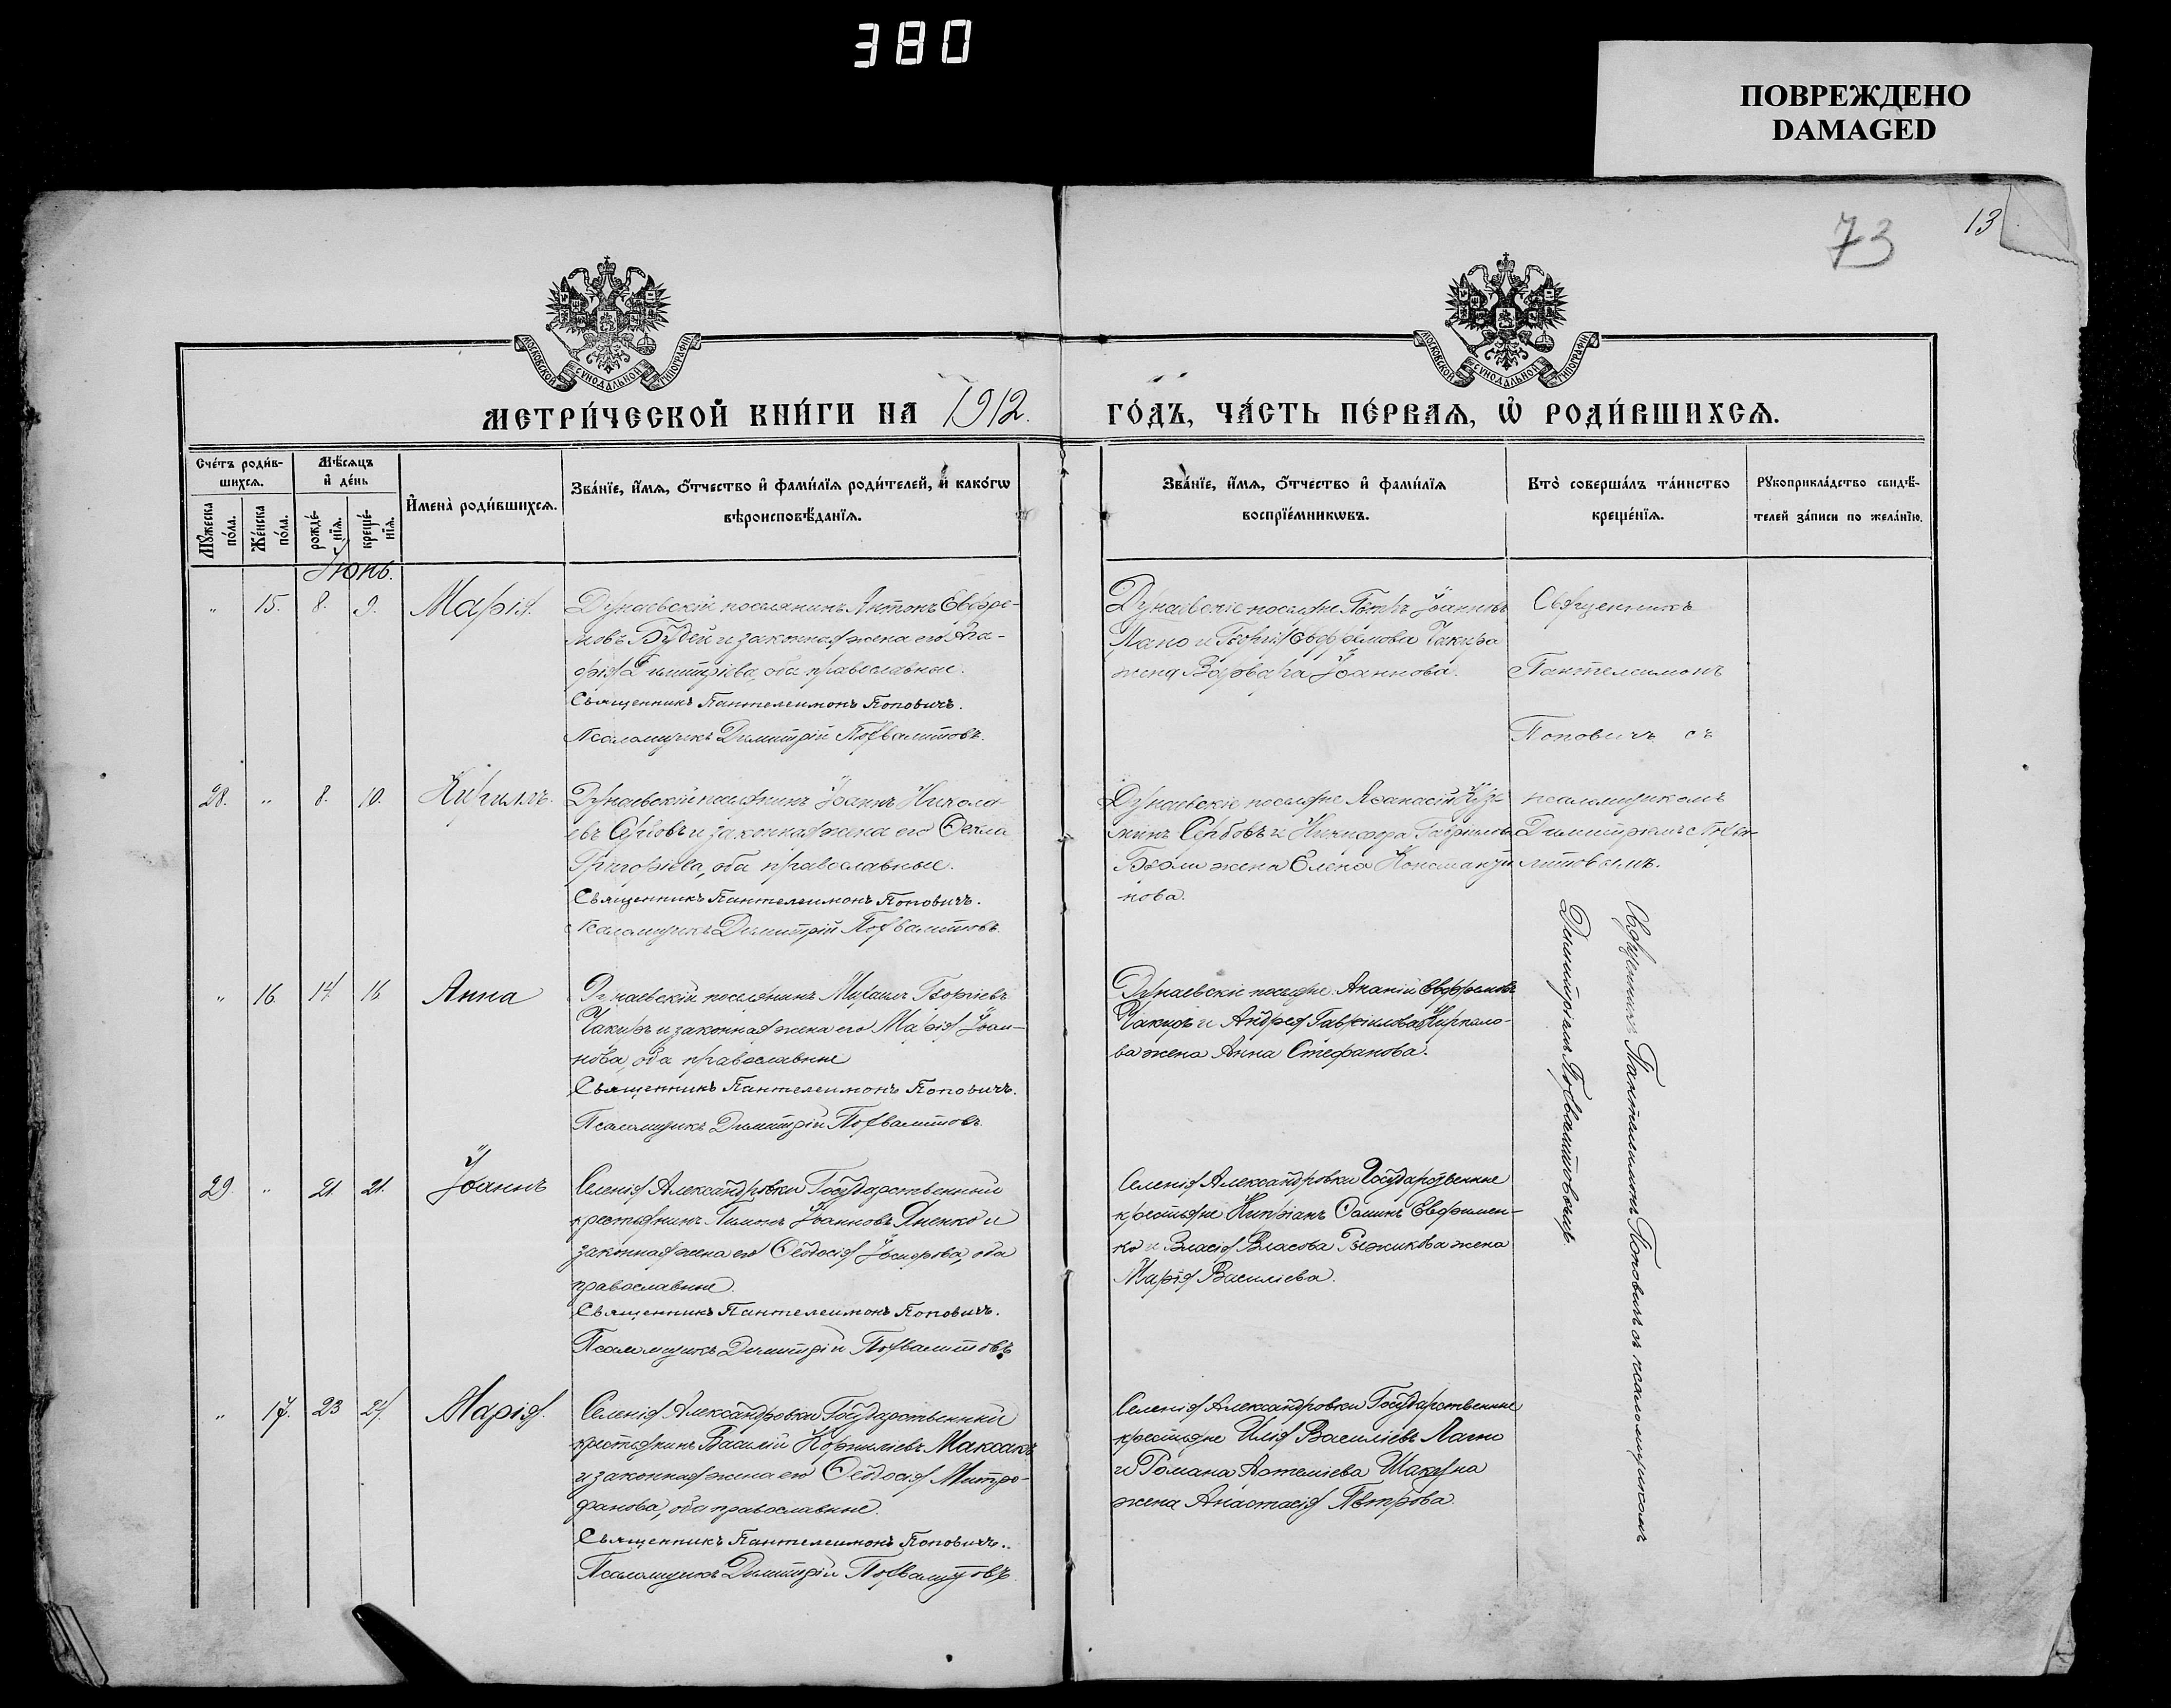 380
ПОВРЕЖДЕНО
DAMAGED
73
13
МОСКОВСКОЙ СУНОДАЛЬНОЙ ТИПОГРАФІИ
МОСКОВСКОЙ СУНОДАЛЬНОЙ ТИПОГРАФІИ
МЕТРИ́ЧЕСКОЙ КНИ́ГИ НА 1912.
ГО́ДЪ, ЧА́СТЬ ПЕ́РВАѦ, Ѡ҆ РОДИ́ВШИХСѦ.
Сче́тъ роди́в-
шихсѧ.
Мѣ́сѧцъ
и҆ де́нь
Мꙋ́жеска
по́ла.
Же́нска
по́ла.
рожде́-
нїѧ.
креще́-
нїѧ.
И҆мена̀ роди́вшихсѧ.
Зва́нїе, и҆́мѧ, ѻ҆́тчество и҆ фами́лїѧ роди́телей, и҆ како́гѡ
вѣроисповѣ́данїѧ.
Зва́нїе, и҆́мѧ, ѻ҆́тчество и҆ фами́лїѧ
воспрїе́мникѡвъ.
Кто̀ соверша́лъ та́инство
креще́нїѧ.
Рꙋкоприкла́дство свидѣ́-
телей за́писи по жела́нїю.
Іюнь.
" 15. 8. 9. Марія.
Дунаевскій поселянинъ Антонъ Евфре-
мовъ Будей и законная жена его Ага-
фія Димитріева, оба православные.
Священникъ Пантелеимонъ Поповичъ.
Псаломщикъ Димитрій
Дунаевскіе поселяне Іоанновъ
и Георгія Евфремова Чакира
жена Варвара Іоаннова.
Священникъ
Пантелеимонъ
Поповичъ съ
28. " 8. 10. Кириллъ.
Дунаевскій поселянинъ Іоаннъ Никола-
евъ Сербовъ и законная жена его Ѳекла
Григоріева, оба православные.
Священникъ Пантелеимонъ Поповичъ.
Псаломщикъ Димитрій
Дунаевскіе поселяне Аѳанасій Кузь-
минъ Сербовъ и Никифора Гаврилова
жена Елена Константи-
нова.
псаломщикомъ
Димитріемъ
" 16. 14. 16. Анна
Дунаевскій поселянинъ Михаилъ Георгіевъ
Чакиръ и законная жена его Марія Іоан-
нова, оба православные
Священникъ Пантелеимонъ Поповичъ.
Псаломщикъ Димитрій
Дунаевскіе поселяне Ананій Евфремовъ
Чакиръ и Андрея Гавріилова
жена Анна Стефанова.
Священникъ Пантелеимонъ Поповичъ съ псаломщикомъ
Димитріемъ
29. " 21. 21. Іоаннъ
Селенія Александровки Государственный
крестьянинъ Іоанновъ и
законная жена его Ѳеодосія Іосифова, оба
православные.
Священникъ Пантелеимонъ Поповичъ.
Псаломщикъ Димитрій
Селенія Александровки Государственные
крестьяне Кипріанъ Ѳоминъ Евфимен-
ко и Власія Власова Рыжикова жена
Марія Василіева.
" 17. 23 24. Марія.
Селенія Александровки Государственный
крестьянинъ Василій Корниліевъ Максакъ
и законная жена его Ѳеодосія Митро-
фанова, оба православные.
Священникъ Пантелеимонъ Поповичъ.
Псаломщикъ Димитрій
Селенія Александровки Государственные
крестьяне Илія Василіевъ
и Романа Артеміева
жена Анастасія Петрова.